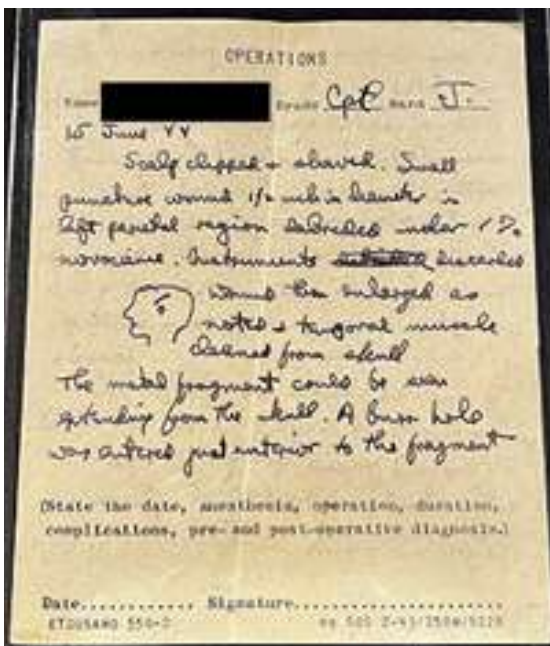 OPERATIONS
Name Grade Cpl Ward J.
15 June 44
Scalp clipped + shaved. Small
puncture wound 1/2 inch in diameter in
left parietal region debrided under 1%
novocaine. Instruments discarded
Wound then enlarged as
noted + temporal muscle
cleaned from skull
The metal fragment could be seen
extending from the skull. A burr hole
was entered just anterior to the fragment
(State the date, anesthesia, operation, duration,
complications, pre- and post-operative diagnosis.)
Date............ Signature......................
ETOUSAMD 550-2